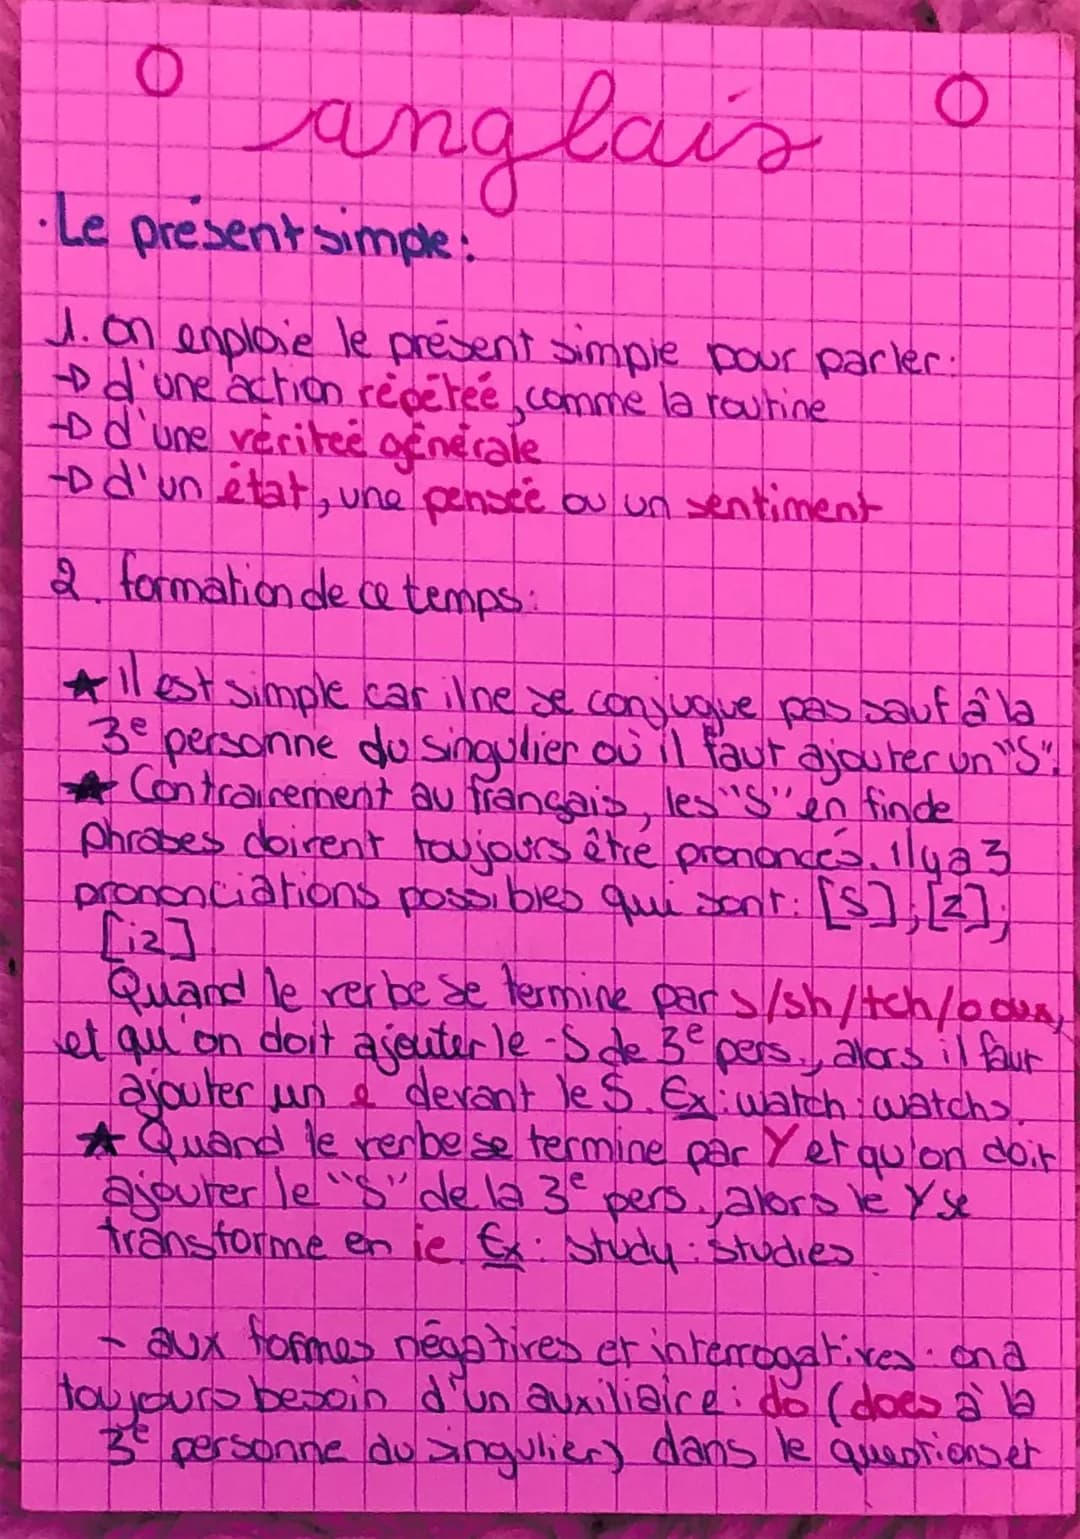 anglais
· Le présent simple :
1. on enploie le présent simple pour parler :
→ d'une action répétéé, comme la routine
→ d'une véritéé générale
→ d'un état, une penséé ou un sentiment
2. formation de ce temps :
★ il est simple car il ne se conjugue pas sauf à la
3e personne du singulier où il faut ajouter un "S".
★ Contrairement au français, les "S" en fin de
phrases doivent toujours être prononcés. Il y a 3
prononciations possibles qui sont : [S] ; [Z] ;
[iz]
Quand le verbe se termine par s/sh/tch/o oux,
et qu'on doit ajouter le -S de 3e pers., alors il faut
ajouter un e devant le S. Ex : watch : watchs
★ Quand le verbe se termine par Y et qu'on doit
ajouter le "S" de la 3e pers., alors le Y se
transforme en ie Ex : study : studies
- aux formes négatives et interrogatives : on a
toujours besoin d'un auxiliaire : do (does à la
3e personne du singulier) dans le questions et